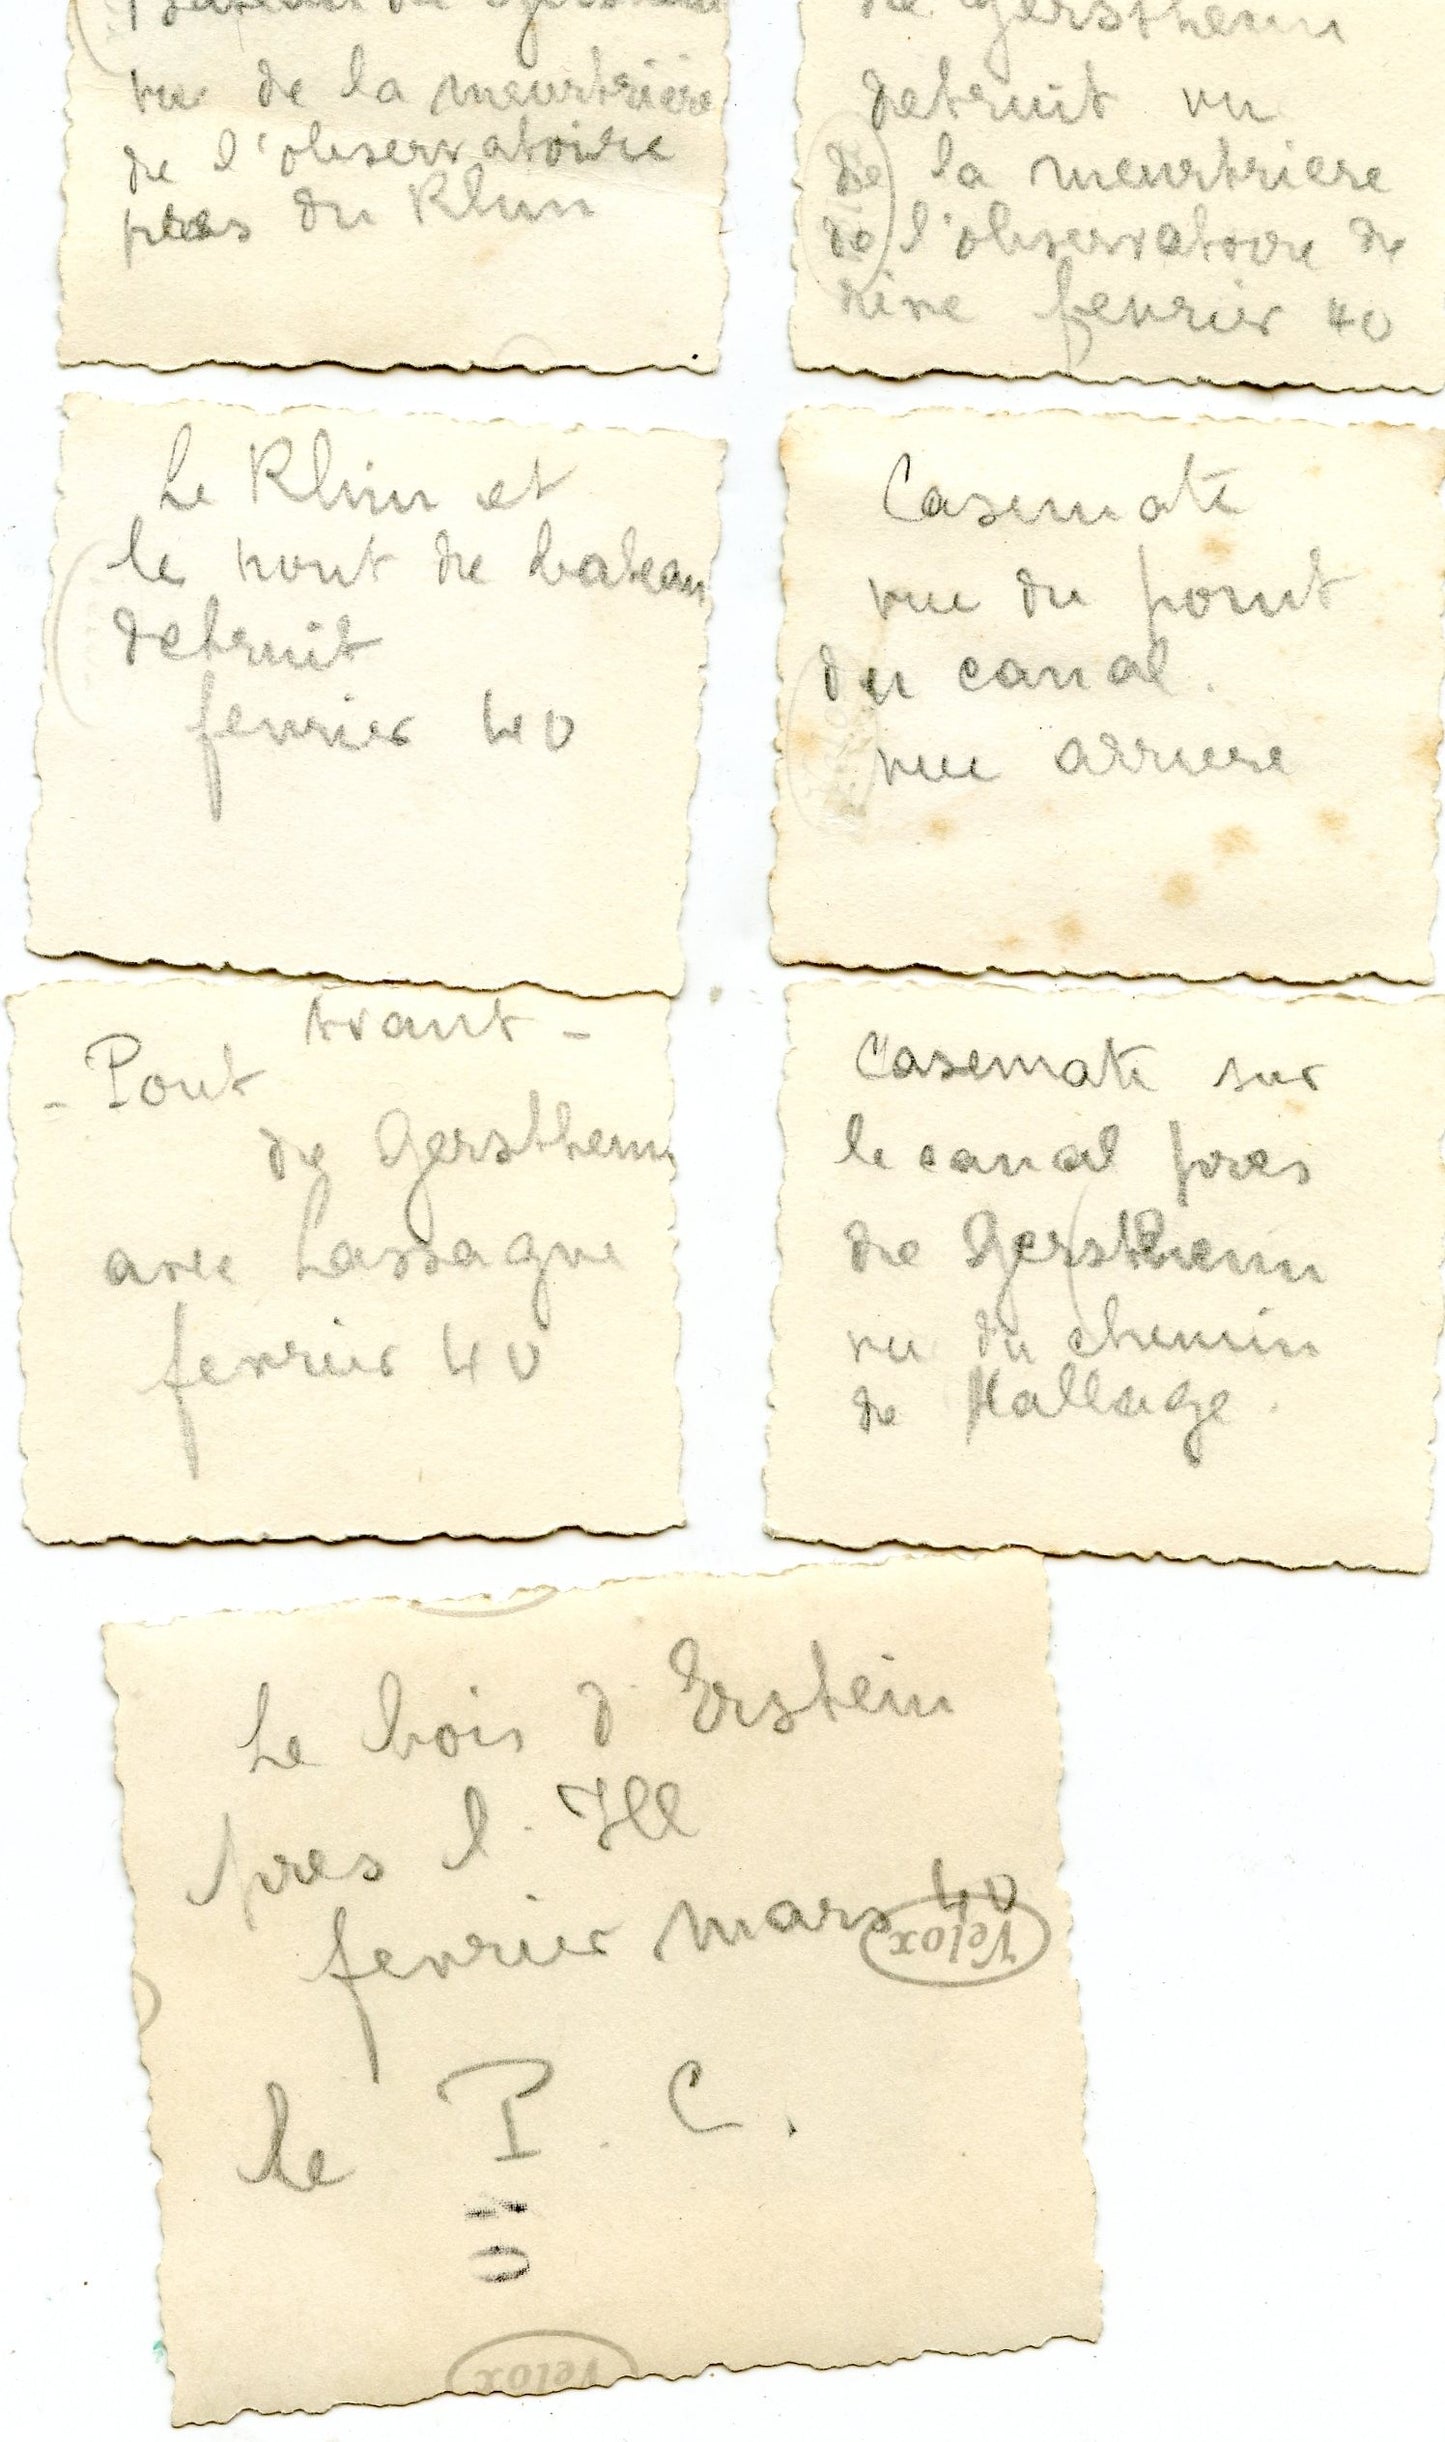 de Gerstheim
vu de la meurtriere
de l'observatoire
pres du Rhin
de Gerstheim
detruit vu
de la meurtriere
de l'observatoire de
rive fevrier 40
Le Rhin et
le pont de bateau
detruit
fevrier 40
Casemate
vue du pont
du canal.
vue arriere
avant -
- Pont
de Gerstheim
avec Lassagne
fevrier 40
Casemate sur
le canal pres
de Gerstheim
vu du chemin
de Hallage.
Le bois d'Erstein
pres l'Ill
fevrier mars 40
Velox
le P.C.
Velox